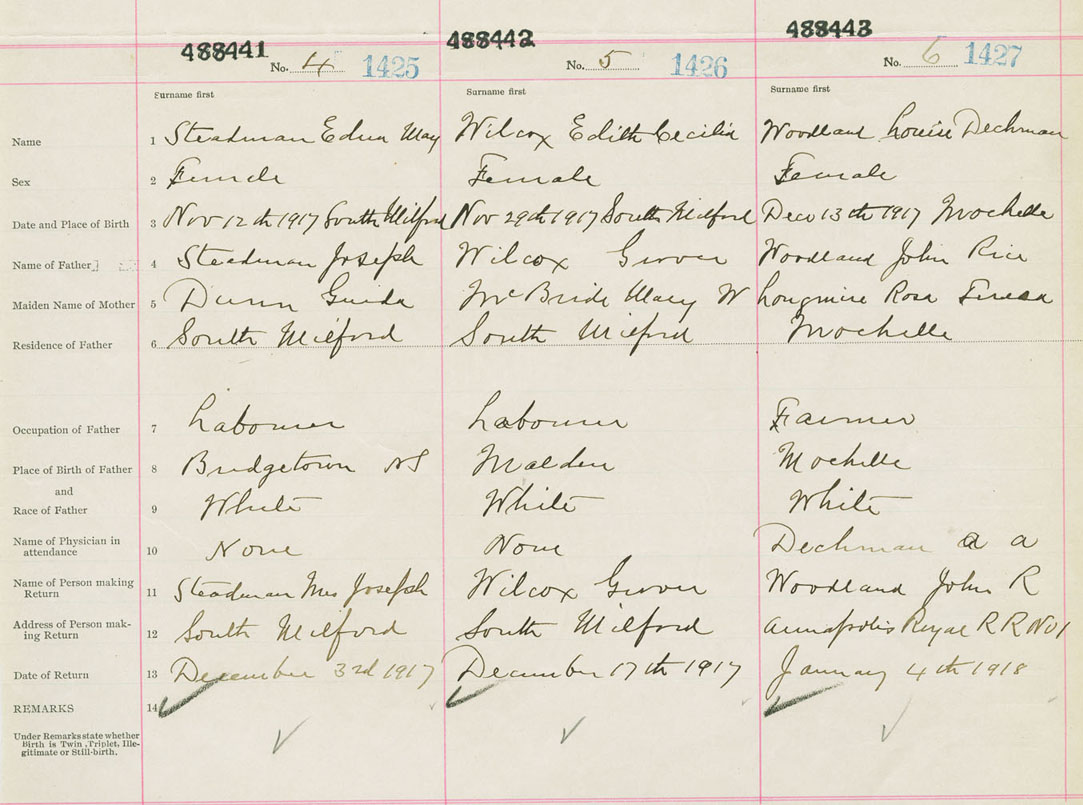 488441 488442 488443
No. 4 1425 No. 5 1426 No. 6 1427
Surname first Surname first Surname first
Name 1 Steadman Edna May Wilcox Edith Cecilia Woodland Louise Dechman
Sex 2 Female Female Female
Date and Place of Birth 3 Nov 12th 1917 South Milford Nov 29th 1917 South Milford Dec 13th 1917 Mochelle
Name of Father 4 Steadman Joseph Wilcox Grover Woodland John Rice
Maiden Name of Mother 5 Dunn Guida McBride Mary W Longmire Rosa Teresa
Residence of Father 6 South Milford South Milford Mochelle
Occupation of Father 7 Labourer Labourer Farmer
Place of Birth of Father 8 Bridgetown NS Malden Mochelle
and
Race of Father 9 White White White
Name of Physician in
attendance 10 None None Dechman a a
Name of Person making
Return 11 Steadman Mrs Joseph Wilcox Grover Woodland John R
Address of Person mak-
ing Return 12 South Milford South Milford Annapolis Royal R R No 1
Date of Return 13 December 3rd 1917 December 17th 1917 January 4th 1918
REMARKS 14
Under Remarks state whether
Birth is Twin, Triplet, Ille-
gitimate or Still-birth.